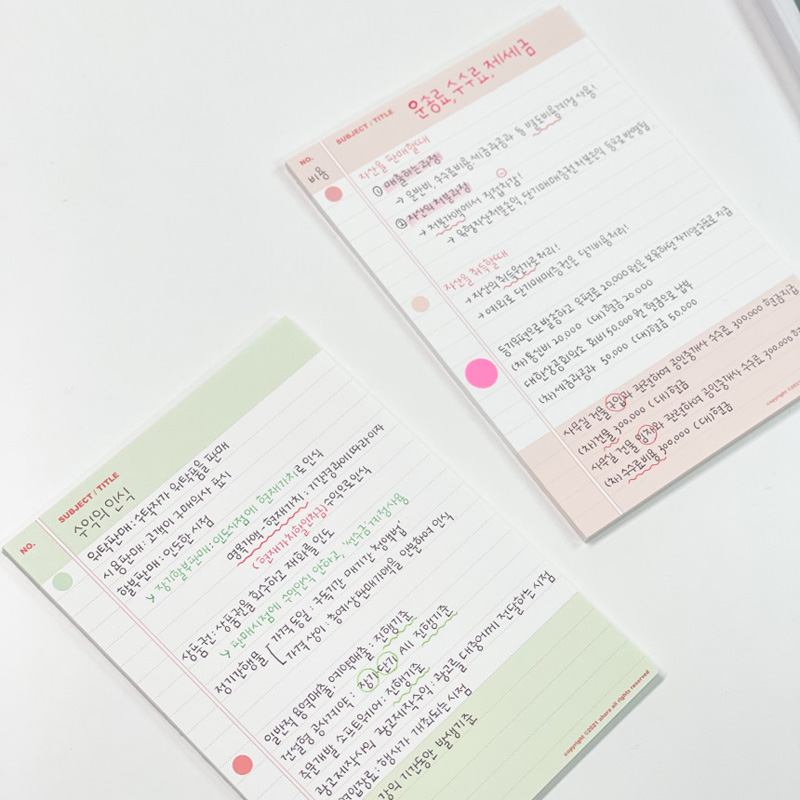 NO.
SUBJECT / TITLE
운송료, 수수료, 제세금
비용
자산을 판매할때
① 매출하는과정
→ 운반비, 수수료비용 세금과공과 등 별도비용계정 사용!
② 자산의처분과정
→ 처분가액에서 직접차감!
→ 유형자산처분손익, 단기매매증권처분손익 등으로 반영됨
자산을 취득할때
→ 자산의취득원가로처리!
→ 예외로 단기매매증권은 당기비용처리!
등기우편으로 발송하고 우편료 20,000원은 보유하던 자기앞수표로 지급
(차)통신비 20,000 (대)현금 20,000
대한상공회의소 회비 50,000원 현금으로 납부
(차)세금과공과 50,000 (대)현금 50,000
사무실 건물 구입과 관련하여 공인중개사 수수료 300,000 현금지급
(차)건물 300,000 (대)현금
사무실 건물 임차와 관련하여 공인중개사 수수료 300,000
(차) 수수료비용 300,000 (대)현금
copyright ©2021
NO.
SUBJECT / TITLE
수익의 인식
위탁판매 : 수탁자가 위탁품을 판매
시용판매 : 고객이 구매의사 표시
할부판매 : 인도한 시점
↳ 장기할부판매 : 인도시점에 현재가치로 인식
명목가액-현재가치 : 기간경과에따라이자
(현재가치할인차금) 수익으로인식
상품권 : 상품권을 회수하고 재화를 인도
↳ 판매시점에 수익인식 안하고, '선수금' 계정사용
정기간행물 [ 가격 동일 : 구독기간 매기간 '정액법'
가격 상이 : 총예상 판매가액을 안분하여 인식
일반적 용역매출, 예약매출 : 진행기준
건설형 공사계약 : 장기 단기 시 진행기준
주문개발 소프트웨어 : 진행기준
광고제작사의 광고제작수익 : 광고를 대중에게 전달하는 시점
입장료 : 행사가 개최되는 시점
강의 기간동안 발생기준
copyright ©2021 ohora all rights reserved